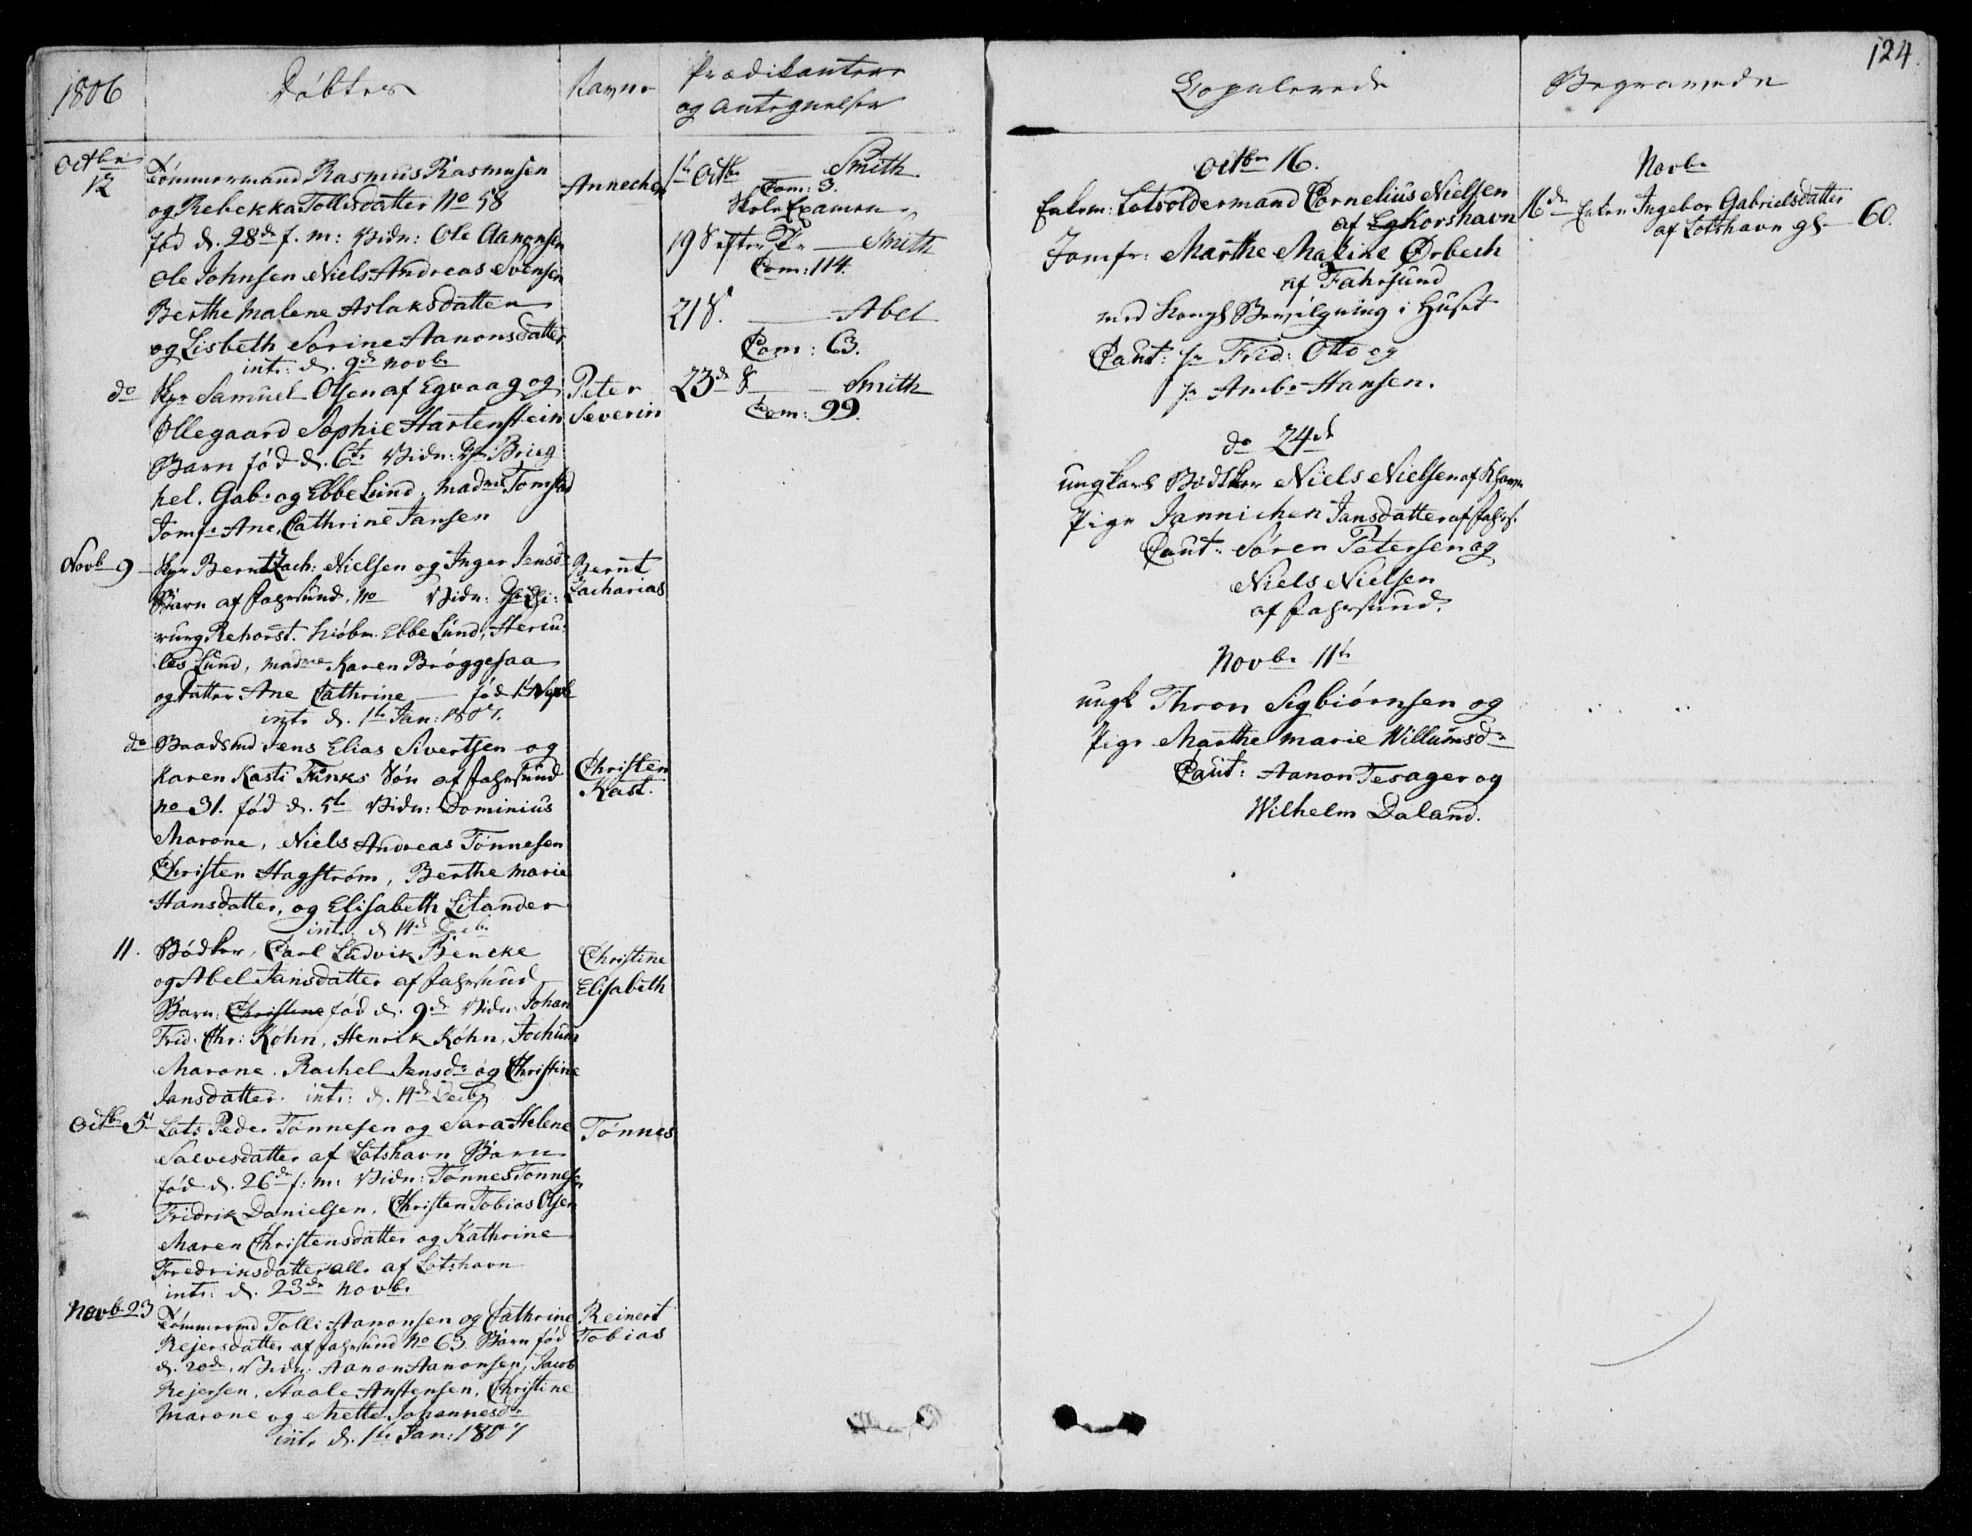 1806
Döbte
Navne
Prædikantere
og Antegnelser
Octbr
12
Tömmermand Rasmus Rasmusen
og Rebekka Tollisdatter No 58
föd d. 28de f. m: Vidn: Ole Aanonsen
Ole Johnsen Niels Andreas Svensen
Berthe Malene Aslaksdatter
og Lisbeth Sorine Aanonsdatter
intr: d. 9de Novbr
Annechen
do
Skpr Samuel Olsen af Egvaag og
Ollegaard Sophie Hartenstein
Barn föd d. 6te Vidn:
Gab: og Ebbe Lund, Madme Tomstad
Jomfr Ane Cathrine Jansen
Peter
Severin
Novb 9
Skpr Bernt Zach: Nielsen og Inger Jensdr
Barn af Fahrsund, No Vidn: Chi:
rurg Rehorst. Kiöbm. Ebbe Lund, Hercu:
les Lund, Madme Karen Bröggesaa
og Datter Ane Cathrine — föd
intr d. 1te Jan: 1807.
Bernt
Zacharias
do
Baadsmd Jens Elias Sivertsen og
Karen Kasti Finks Sön af Fahrsund
No 31. föd d. 5te Vidn: Dominius
Marone, Niels Andreas Tönnesen
Christen Hagström, Berthe Marie
Hansdatter, og Elisabeth Litander
intr. d 14de Decbr
Christen
Kast.
11.
Bödker, Carl Ludvik Bencke
og Abel Jansdatter af Fahrsund
Barn: Christine föd d. 9de Vidn: Johan
Frid. Chr: Köhn, Henrik Köhn, Jochum
Marone. Rachel Jensdr og Christine
Jansdatter. intr: d. 14de Decbr
Christine
Elisabeth
Octbr 5
Lots Peder Tönnesen og Sara Helene
Salvesdatter af Lotshavn Barn
föd d. 26de f: m: Vidn: Tönnes Tönnesen
Fridrik Danielsen, Christen Tobias Olsen
Maren Christensdatter og Kathrine
Fredriksdatter alle af Lotshavn
intr: d. 23de Novbr
Tönnes
Novb 23
Tömmermd Tolli Aanonsen og Cathrine
Rejersdatter af Fahrsund No 63 Barn föd
d. 20de, Vidn: Aanon Aanonsen, Jacob
Rejersen, Staale Anstensen, Christine
Marone og Mette Johannesdr
intr d. 1te Jan: 1807
Reinert
Tobias
1te Octbr — Smith
Com: 3.
Skole Examen
19 S efter Tr — Smith
Com: 114.
21 S. — Abel
Com: 63.
23de S — Smith
Com: 99.
Copulerede
Octbr 16.
Enkem: Lotsoldermand Cornelius Nielsen
af Eg Korshavn
Jomfr: Marthe Malene Örbech
af Fahrsund
med Kongl Bevilgning i Huset
Caut: Hr Frid: Otto og
Hr Ambr Hansen.
do 24de
Ungkarl Bödker Niels Nielsen af
Pige Jannichen Jansdatter af Fahrs.
Caut: Sören Petersen og
Niels Nielsen
af Fahrsund.
Novbr 11te
Ungk Thron Sigbiörnsen og
Pige Marthe Marie Willumsdr
Caut: Aanon Tesager og
Wilhelm Daland.
Begravede
124.
Novbr
16de Enken Ingebor Gabrielsdatter
af Lotshavn gl — 60.